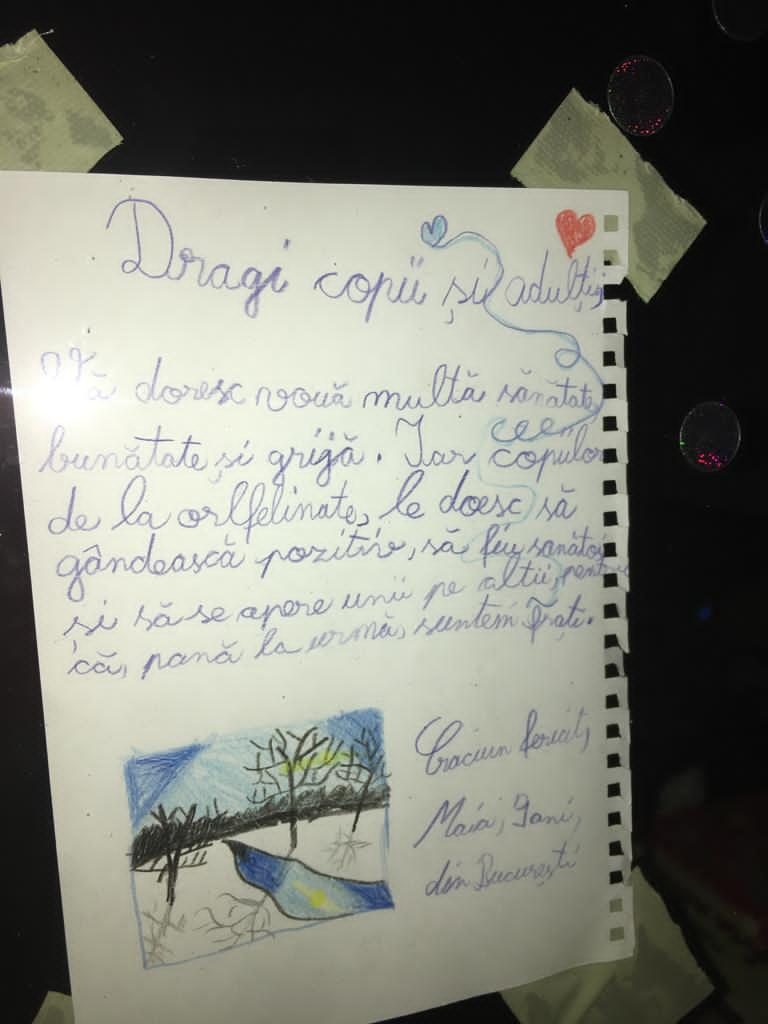 Dragi copii și adulți,
Vă doresc vouă multă sănătate,
bunătate și grijă. Iar copiilor
de la orlfelinate, le doesc să
gândească pozitiv, să fiu sanătoși
și să se apere unii pe altii, pentru
că, pană la urmă, suntem frați.
Craciun fericit,
Maia, 9 ani,
din București